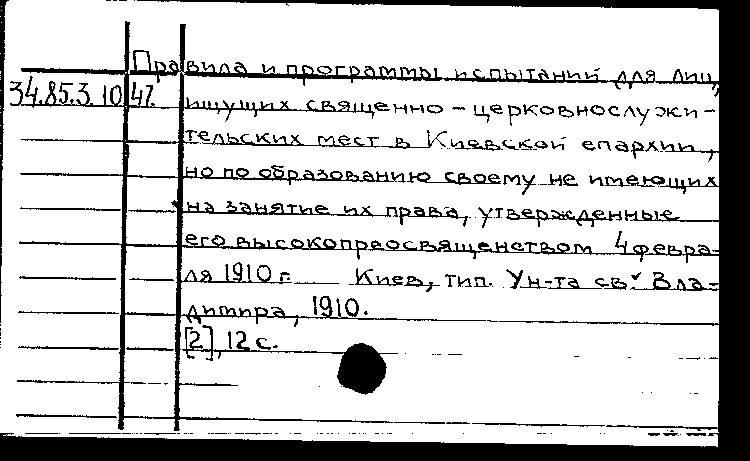 Правила и программы испытаний для лиц,
34.85.3.10 47. ищущих священно-церковнослужи-
тельских мест в Киевской епархии,
но по образованию своему не имеющих
на занятие их права, утвержденные
его высокопреосвященством 4 февра-
ля 1910 г. Киев, тип. Ун-та св. Вла-
димира, 1910.
[2], 12 с.